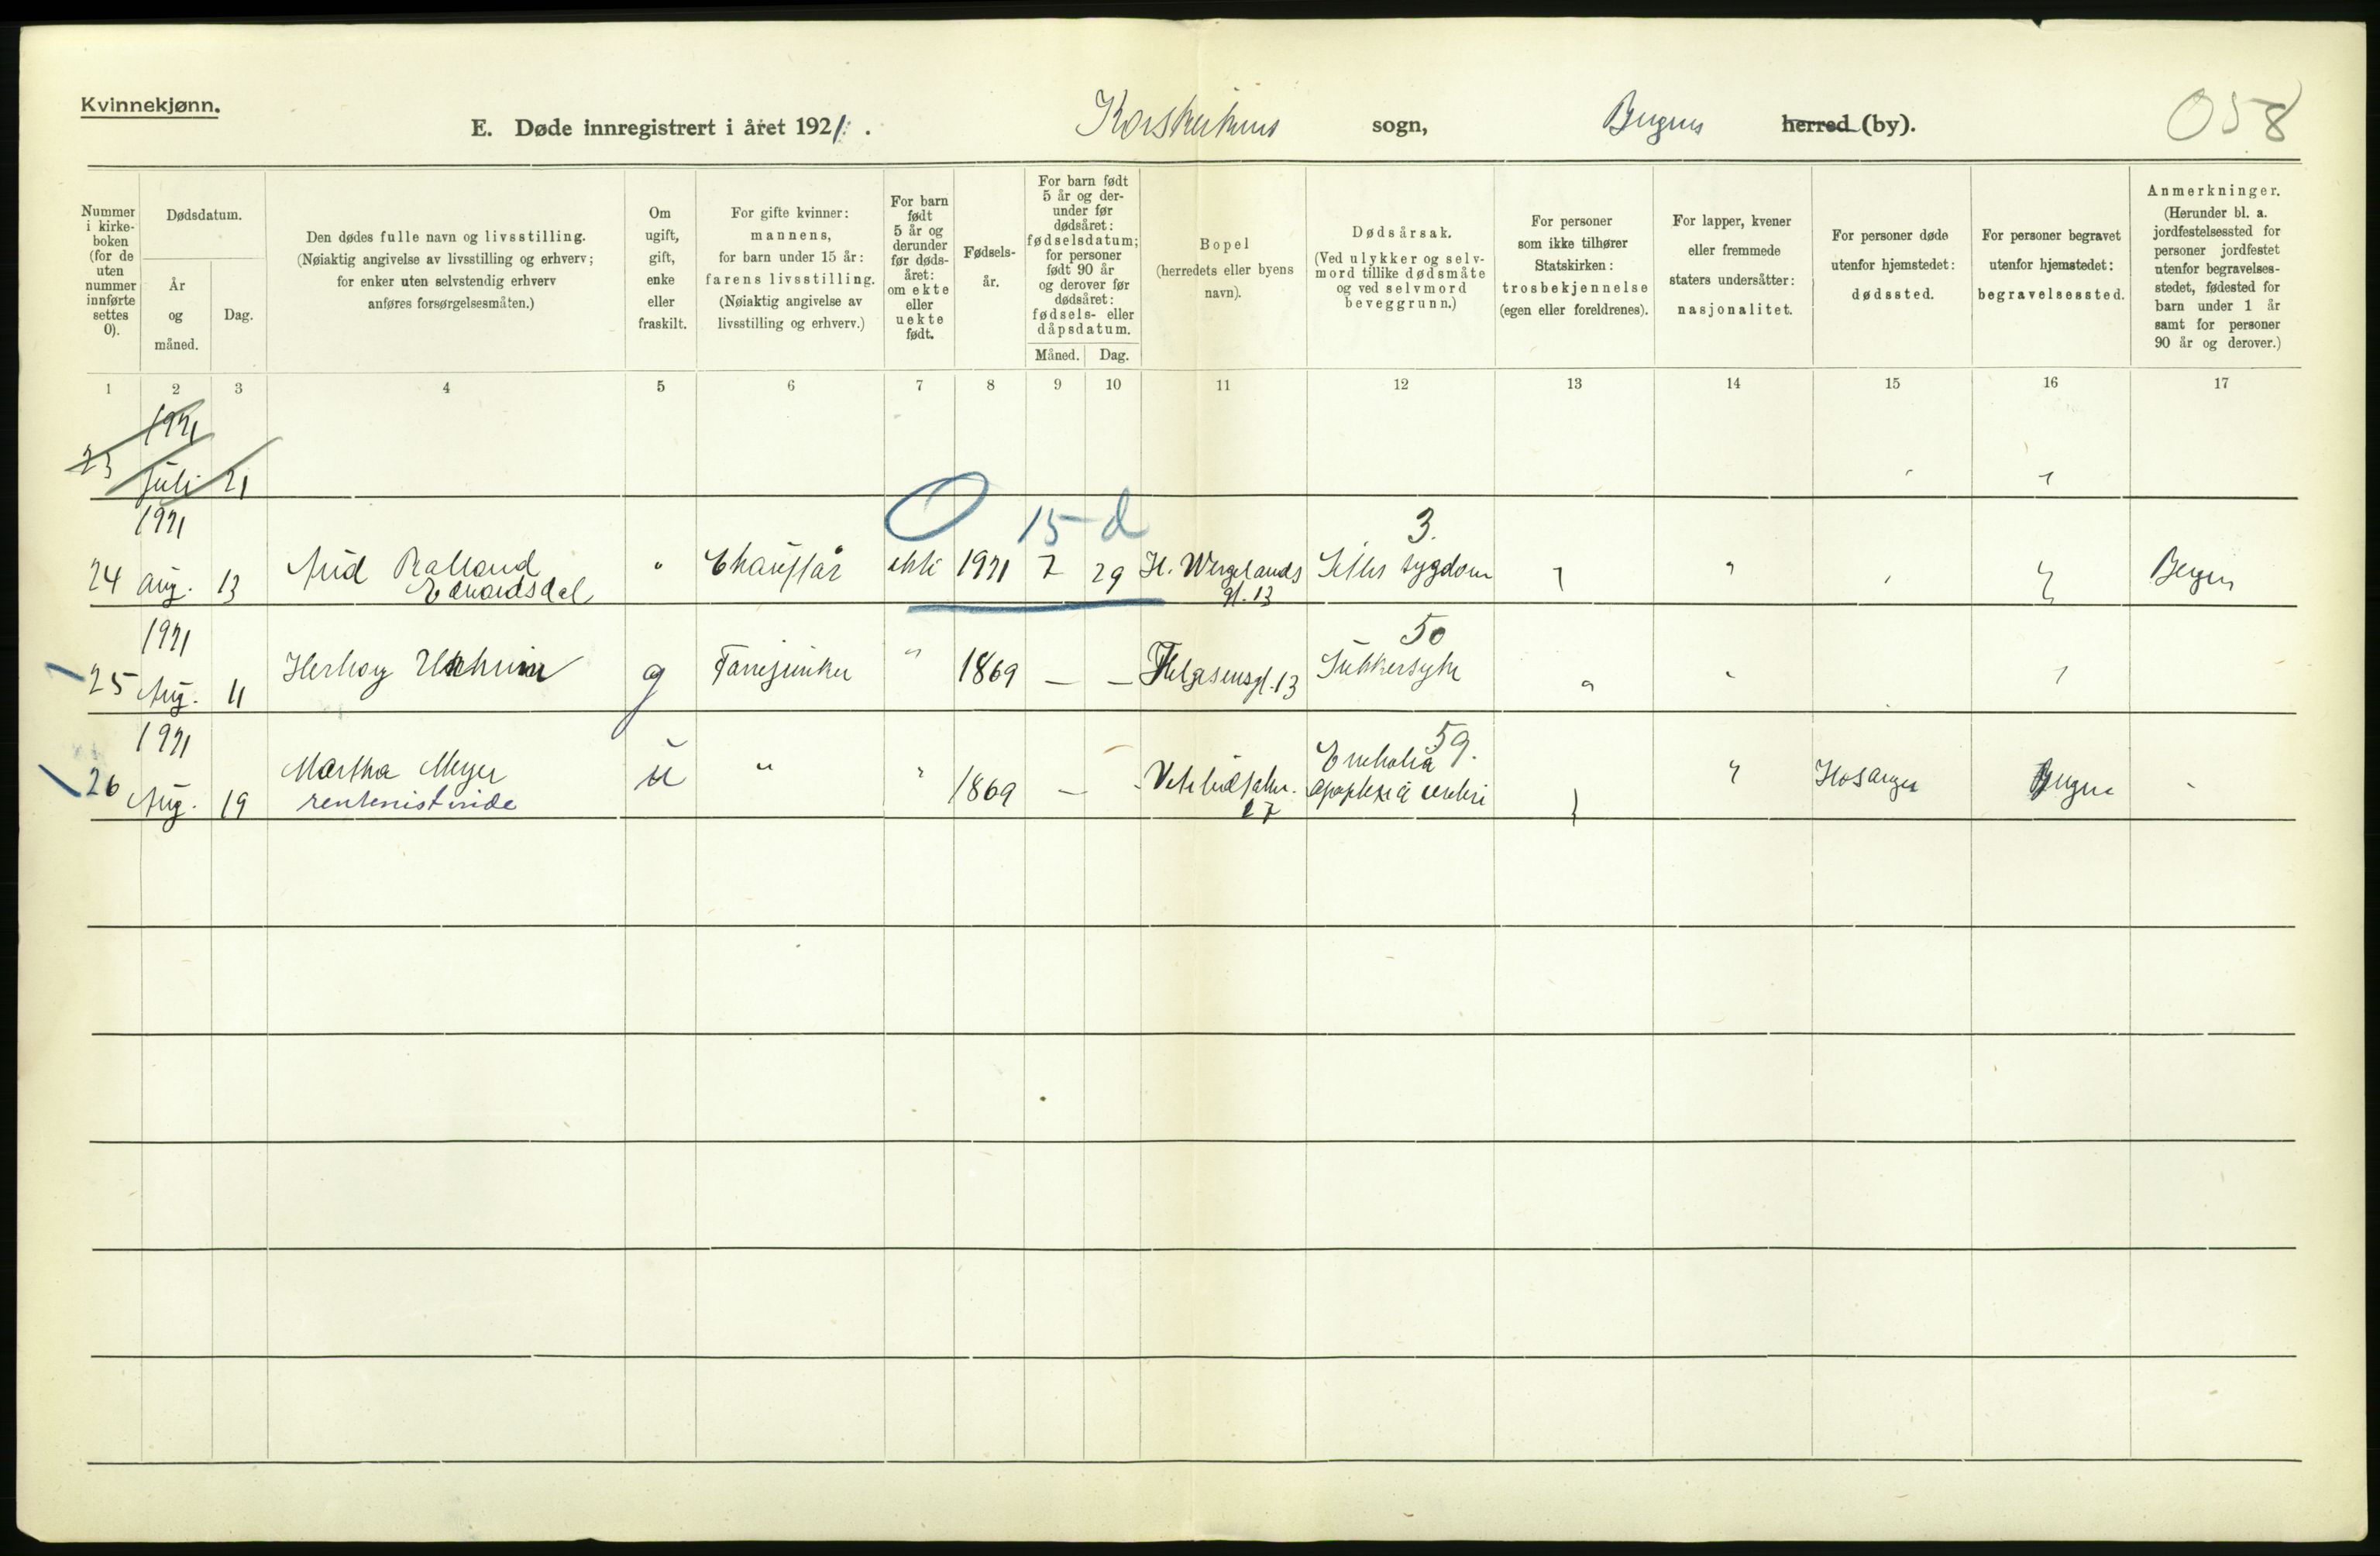 Kvinnekjønn.
E. Døde innregistrert i året 1921. Korskirkens sogn, Bergens herred (by). 058
Nummer i kirke-boken (for de uten nummer innførte settes 0).
Dødsdatum.
År og måned.
Dag.
Den dødes fulle navn og livsstilling.
(Nøiaktig angivelse av livsstilling og erhverv;
for enker uten selvstendig erhverv
anføres forsørgelsesmåten.)
Om ugift, gift, enke eller fraskilt.
For gifte kvinner:
mannens,
for barn under 15 år:
farens livsstilling.
(Nøiaktig angivelse av
livsstilling og erhverv.)
For barn født 5 år og derunder før døds-året: om ekte eller uekte født.
Fødsels-år.
For barn født 5 år og der-under før dødsåret: fødselsdatum; for personer født 90 år og derover før dødsåret: fødsels- eller dåpsdatum.
Måned. Dag.
Bopel
(herredets eller byens
navn).
Dødsårsak.
(Ved ulykker og selv-
mord tillike dødsmåte
og ved selvmord
beveggrunn.)
For personer
som ikke tilhører
Statskirken:
trosbekjennelse
(egen eller foreldrenes).
For lapper, kvener
eller fremmede
staters undersåtter:
nasjonalitet.
For personer døde
utenfor hjemstedet:
dødssted.
For personer begravet
utenfor hjemstedet:
begravelsessted.
Anmerkninger.
(Herunder bl. a.
jordfestelsessted for
personer jordfestet
utenfor begravelses-
stedet, fødested for
barn under 1 år
samt for personer
90 år og derover.)
1 2 3 4 5 6 7 8 9 10 11 12 13 14 15 16 17
1921
23 Juli 21
1921 0 15 d 3.
24 Aug. 13 Aud " Chauffør ekte 1921 7 29 H. Wergelands sygdom Bergen
Edvardsdal gt. 13
1921 50
25 Aug. 11 g " 1869 — — 13 Sukkersyke
1921 59.
26 Aug. 19 Martha Meyer u " " 1869 — Embolia Hosanger Bergen
rentenistinde 17 apoplexia cerebri